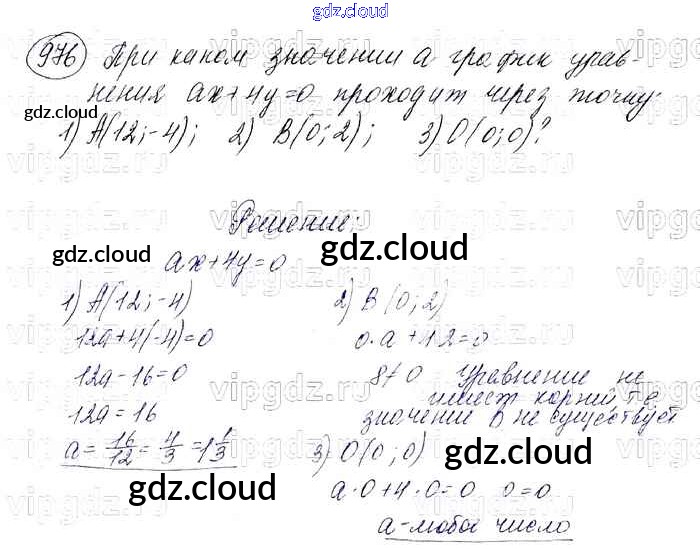 gdz.cloud
976 При каком значении a график урав-
нения ax+4y=0 проходит через точку:
gdz.cloud
1) A(12;-4); 2) B(0;2); 3) O(0;0)?
Решение:
gdz.cloud gdz.cloud
ax+4y=0
1) A(12;-4) 2) B(0;2)
12a+4(-4)=0 0·a+4·2=0
12a-16=0 8≠0 Уравнение не
имеет корней т.е
12a=16 значений в не существует
a=16/12=4/3=1 1/3 3) O(0;0)
gdz.cloud
gdz.cloud
a·0+4·0=0 0=0
a-любое число
gdz.cloud
vipgdz.ru